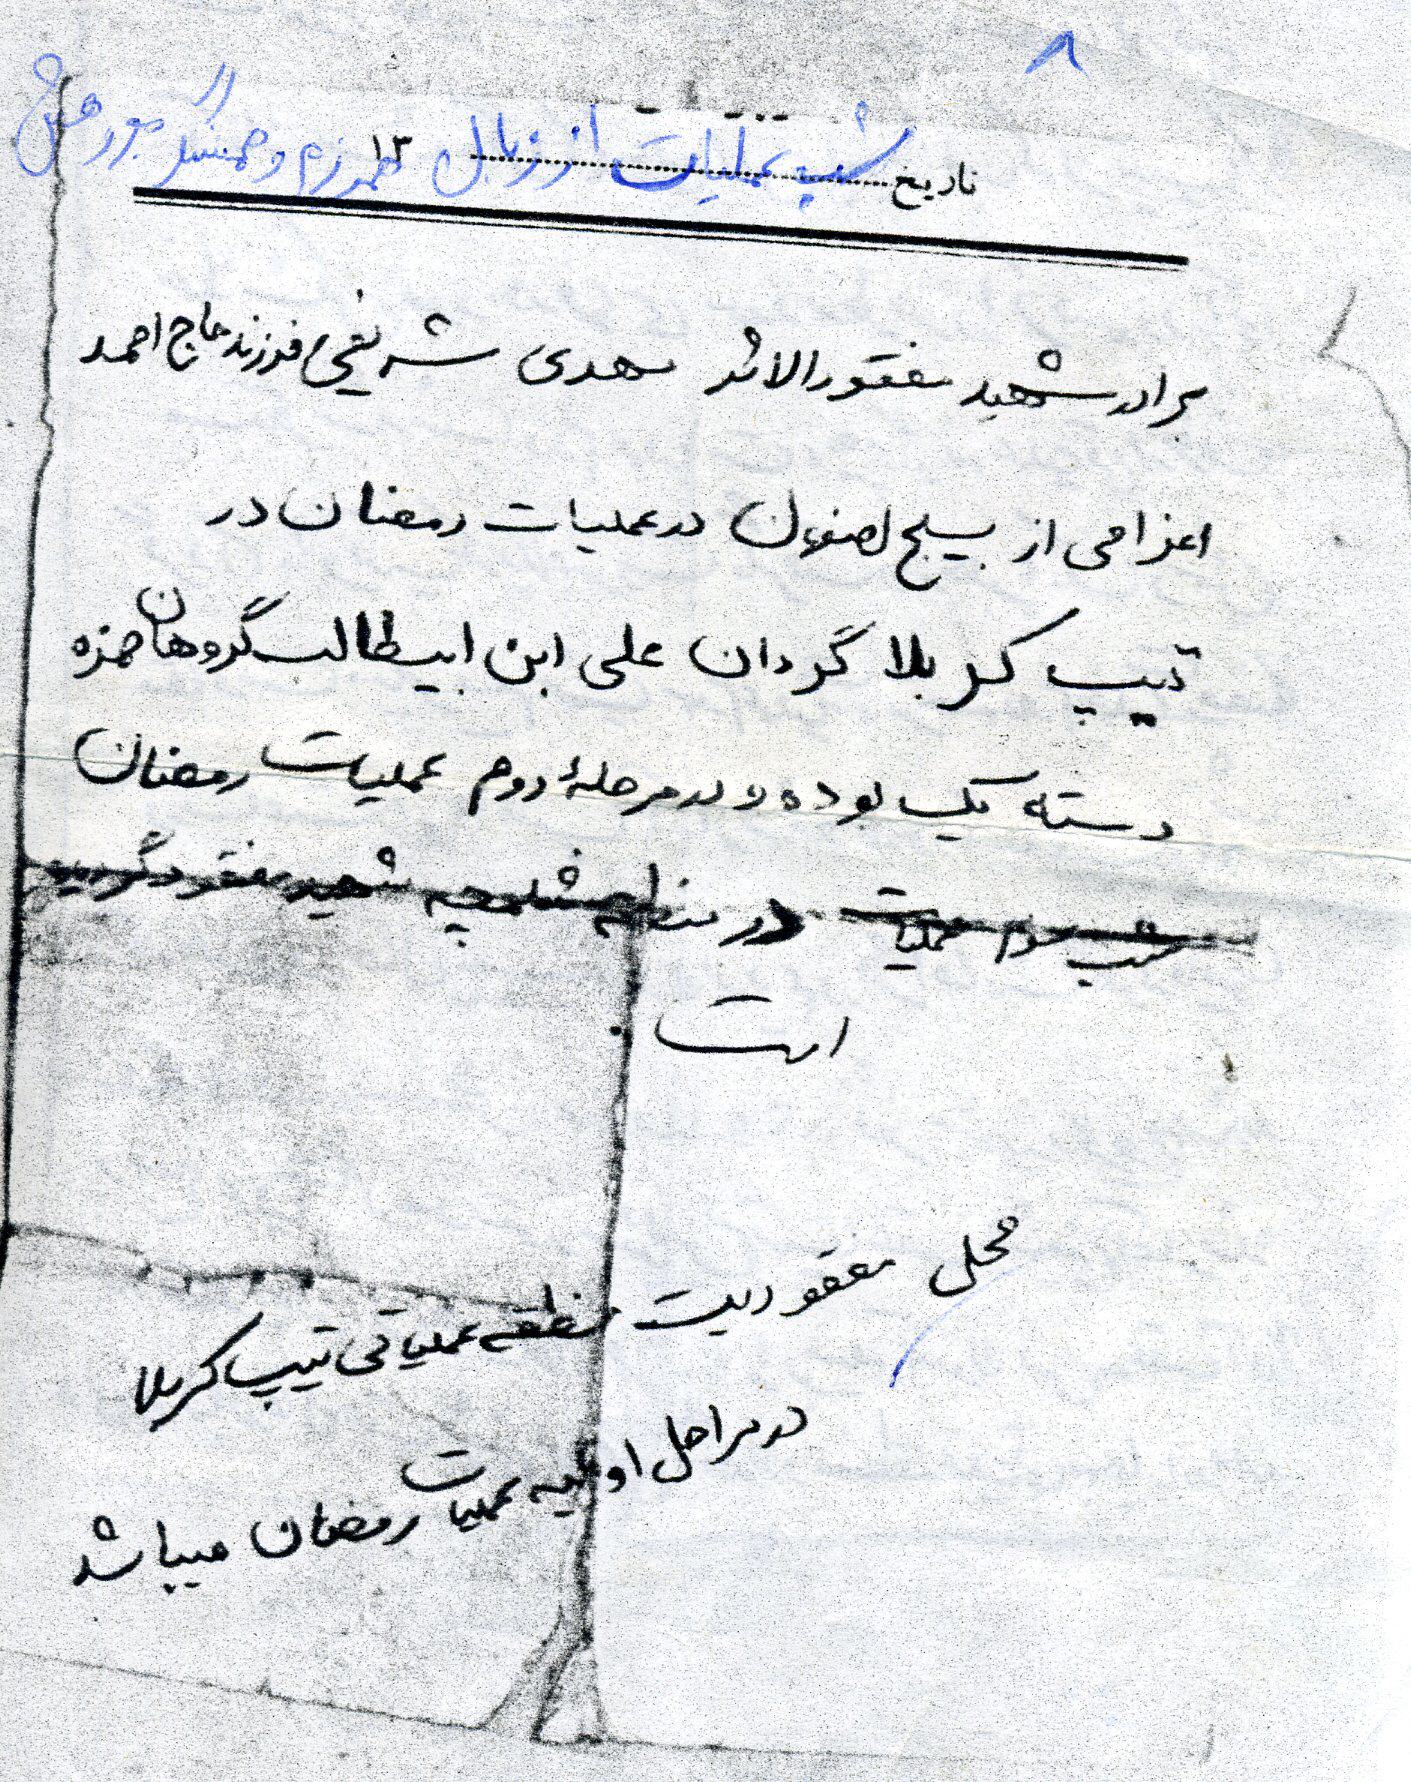 ۸
شب عملیات از زبان همرزم و همسنگر
تاریخ ۱۳
برادر شهید مفقودالاثر مهدی شریفی فرزند حاج احمد
اعزامی از بسیج اصفهان در عملیات رمضان در
تیپ کربلا گردان علی ابن ابیطالب گروهان حمزه
دسته یک بوده و در مرحلهٔ دوم عملیات رمضان
شب سوم عملیات در منطقه شلمچه شهید مفقود گردیده
است .
محل مفقودیت منطقه عملیاتی تیپ کربلا
در مراحل اولیه عملیات رمضان میباشد